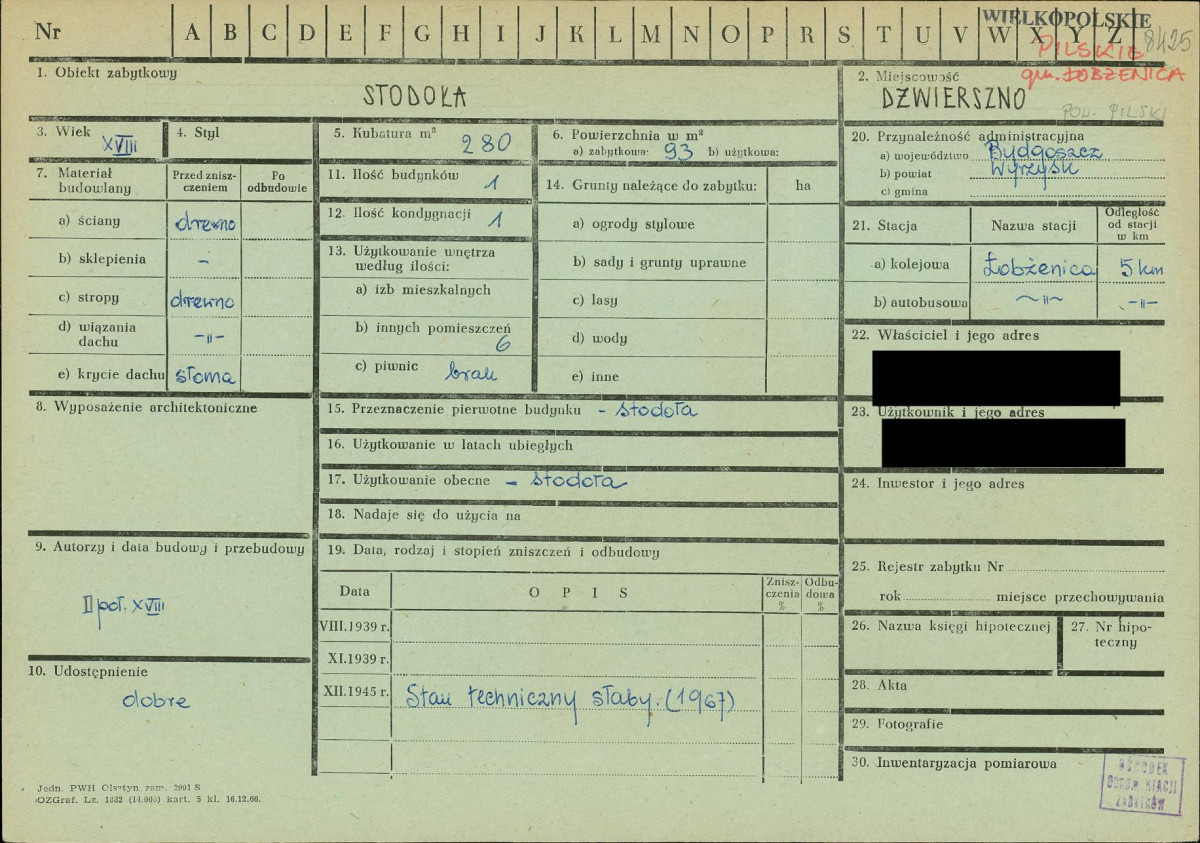 Nr A B C D E F G H I J K L M N O P R S T U V W X Y Z
WIELKOPOLSKIE
8425
PILSKIE
gm. ŁOBŻENICA
1. Obiekt zabytkowy
STODOŁA
2. Miejscowość
DŹWIERSZNO
POW. PILSKI
3. Wiek
XVIII
4. Styl
5. Kubatura m³
280
6. Powierzchnia w m²
a) zabytkowa: 93 b) użytkowa:
7. Materiał budowlany
Przed znisz-
czeniem
Po
odbudowie
a) ściany drewno
b) sklepienia -
c) stropy drewno
d) wiązania
dachu -"-
e) krycie dachu słoma
8. Wyposażenie architektoniczne
9. Autorzy i data budowy i przebudowy
II poł. XVIII
10. Udostępnienie
dobre
11. Ilość budynków 1
12. Ilość kondygnacji 1
13. Użytkowanie wnętrza
według ilości:
a) izb mieszkalnych
b) innych pomieszczeń
6
c) piwnic brak
14. Grunty należące do zabytku: ha
a) ogrody stylowe
b) sady i grunty uprawne
c) lasy
d) wody
e) inne
15. Przeznaczenie pierwotne budynku - stodoła
16. Użytkowanie w latach ubiegłych
17. Użytkowanie obecne - stodoła
18. Nadaje się do użycia na
19. Data, rodzaj i stopień zniszczeń i odbudowy
Data
OPIS
Znisz-
czenia
%
Odbu-
dowa
%
VIII.1939 r.
XI.1939 r.
XII.1945 r. Stan techniczny słaby. (1967)
20. Przynależność administracyjna
a) województwo Bydgoszcz
b) powiat Wyrzysk
c) gmina
21. Stacja
Nazwa stacji
Odległość
od stacji
w km
a) kolejowa Łobżenica 5 km
b) autobusowa ~"- -"-
22. Właściciel i jego adres
23. Użytkownik i jego adres
24. Inwestor i jego adres
25. Rejestr zabytku Nr
rok miejsce przechowywania
26. Nazwa księgi hipotecznej
27. Nr hipo-
teczny
28. Akta
29. Fotografie
30. Inwentaryzacja pomiarowa
OŚRODEK
DOKUMENTACJI
ZABYTKÓW
Jedn. PWH Olsztyn zam. 2991 S
OZGraf. Lz. 1832 (14.000) kart. 5 kl. 16.12.66.